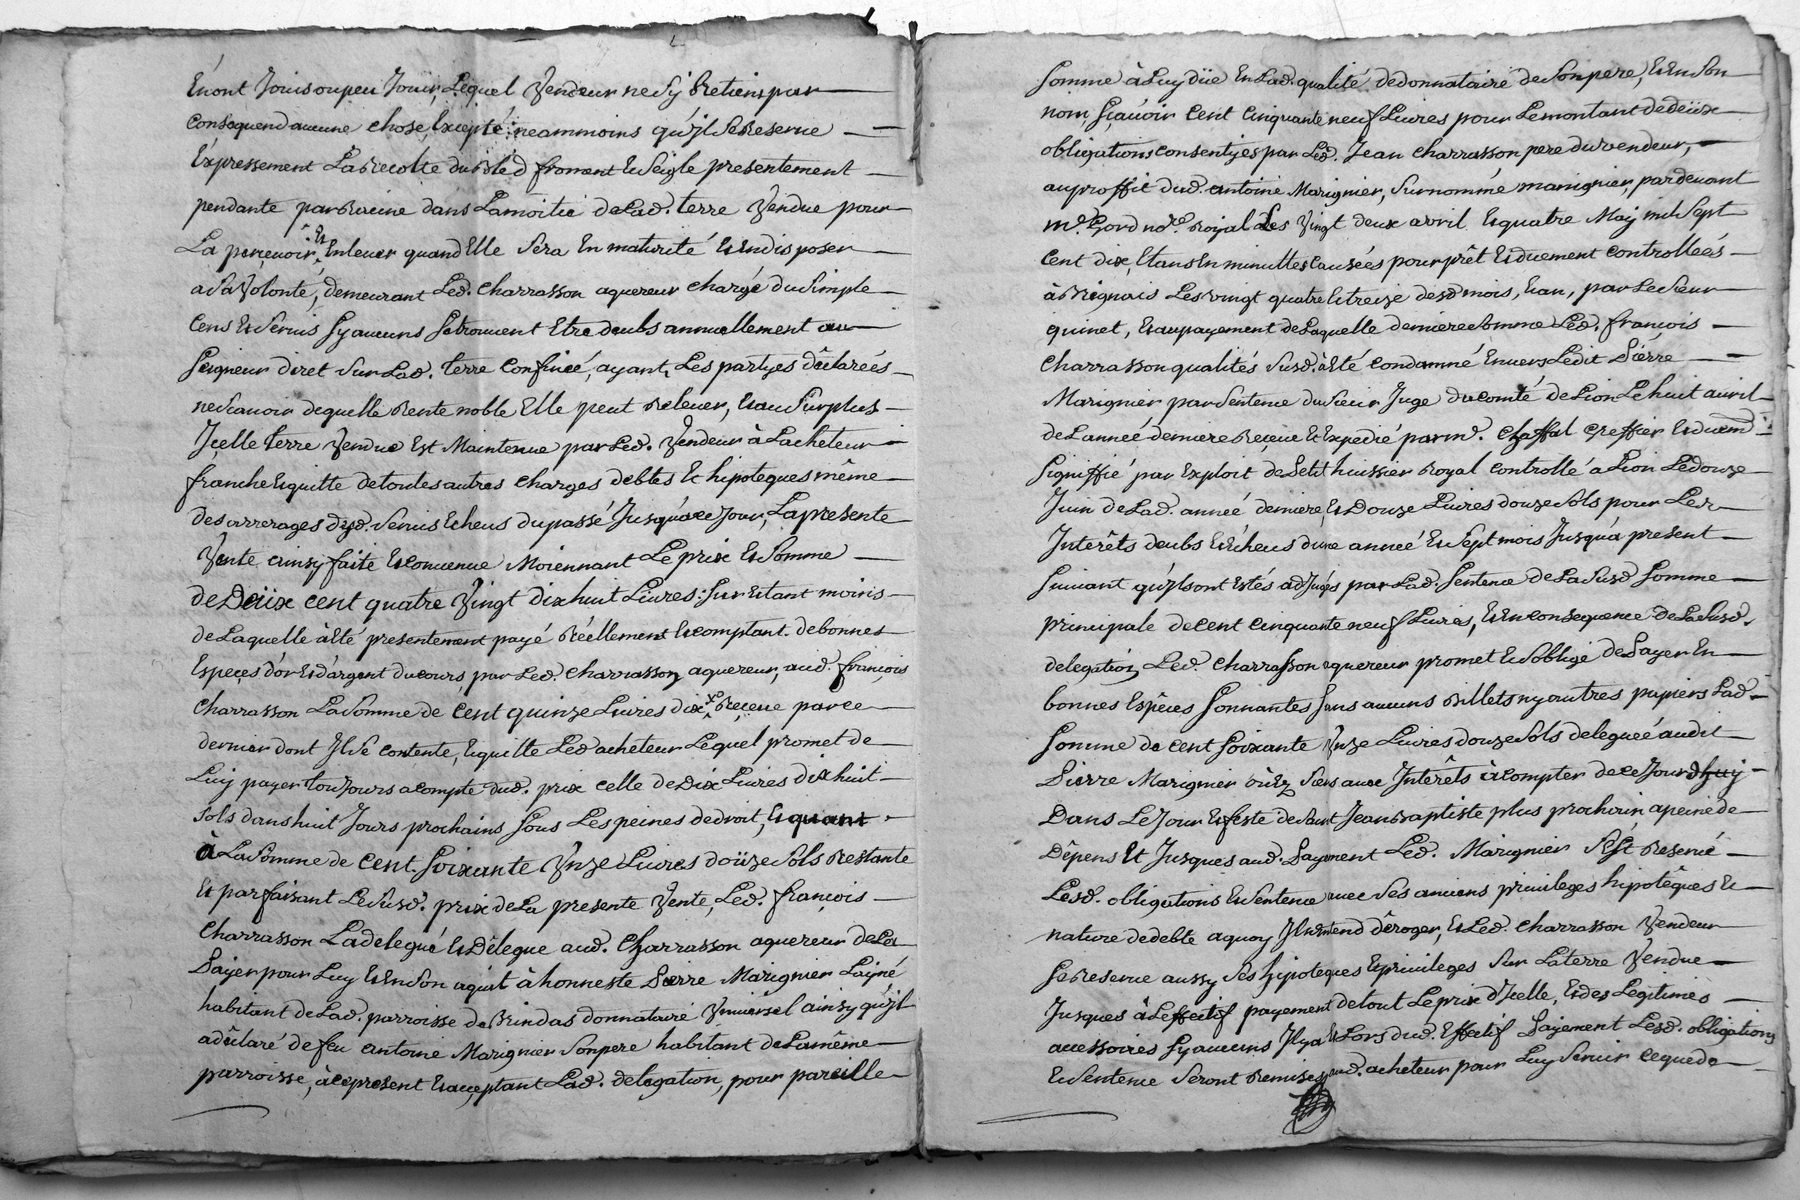 En ont Jouis ou peu Jouir, Lequel Vendeur ne S'y Retiens par
consequend aucune chose, Excepté neammoins qu'jl Se Reserve
Expressement La Recolte du Bled froment Et Seigle presentement
pendante par Racine dans La moitié de Lad. terre Vendue pour
La percevoir, Et Enlever quand Elle Sera En maturité Et En disposer
a Sa Volonté, demeurant Led. Charrasson aquereur chargé du Simple
Cens Et Servis Sy aucuns Se trouvent Etre deubs annuellement au
Seigneur diret Sur Lad. terre Confinée, ayant, Les partyes déclareés
ne Scavoir de quelle Rente noble Elle peut Relever, Et au Surplus
Jcelle terre Vendue Est Maintenue par Led. Vendeur à Lacheteur
franche Et quitte de toutes autres charges debtes Et hipoteques même
des arrerages dud. Servis Echeus du passé Jusqu'a ce Jour, La presente
Vente ainsy faite Et convenue Moiennant Le prix Et Somme
de Deüx cent quatre Vingt dix huit Livres; Sur Et tant moins
de Laquelle à Eté presentement payé Réellement Et comptant de bonnes
Especes d'or Et d'argent du cours, par Led. Charrasson aquereur, aud. françois
Charrasson La Somme de Cent quinze Livres dix Reçeue par ce
dernier dont Jl Se contente, Et quitte Led. acheteur Lequel promet de
Luy payer toujours a compte dud. prix celle de Dix Livres dix huit
Sols dans huit Jours prochains Sous Les peines de droit, Et quant
à La Somme de Cent Soixante Vnze Livres doüze Sols Restante
Et parfaisant Le Susd. prix de La presente Vente, Led. françois
Charrasson La delegué Et Délegue aud. Charrasson aquereur de La
Payer pour Luy Et En Son aquit à honneste Pierre Marignier Layné
habitant de Lad. parroisse de Brindas donnataire Vniversel ainsy qu'jl
a déclaré de feu antoine Marignier Son pere habitant de La même
parroisse, à ce present Et acceptant Lad. delegation, pour pareille
Somme à Luy düe En Lad. qualité de donnataire de Son pere, Et En Son
nom, Sçavoir Cent Cinquante neuf Livres pour Le montant de deüx
obligations consentyes par Led. Jean Charrasson pere du vendeur,
au proffit dud. antoine Marignier, Surnommé manignier, pardevant
me. Gord nore. Royal Les Vingt deux avril Et quatre May mil Sept
Cent dix, Etans En minuttes Causées pour prêt Et duement controlleés
à Brignais Les Vingt quatre Et treize desd. mois, Et an, par Le Sieur
quinet, Et au payement de Laquelle derniere Somme Led. françois
Charrasson qualités Susd. à Eté Condamné Envers Ledit Piérre
Marignier par Sentence du Sieur Juge du comté de Lion Le huit avril
de L'anneé derniere Reçeue Et Expedié par me. Chaffal greffier Et duemt.
Signiffié par Exploit de Petit huissier Royal controllé a Lion Le douze
Juin de Lad. anneé derniere, Et Douze Livres douze Sols pour Les
Interêts deubs Et Echeus d'une anneé Et Sept mois Jusqu'a present
Suivant qu'jls ont Estés adjugés par Lad. Sentence de La Susd. Somme
principale de cent cinquante neuf Livres, Et En consequence de La Susd.
delegation, Led. Charrasson aquereur promet Et Soblige de Payer En
bonnes Espêces Sonnantes Sans aucuns Billets ny autres papiers Lad.
Somme de cent Soixante Vnze Livres douze Sols delegueé audit
Pierre Marignier avec Interêts à compter de ce Jourdhuy
Dans Le Jour Et feste de Saint Jean Baptiste plus prochain, a peine de
Dépens Et Jusques aud. Payement Led. Marignier S'est Reservé
Lesd. obligations Et Sentence avec Ses anciens privileges hipotêques Et
nature de debte a quoy Jl n'entend déroger, Et Led. Charrasson Vendeur
Se Reserve aussy Ses hipoteques Et privileges Sur La terre Vendue
Jusques à Leffectif payement de tout Le prix d'Jcelle, Et des Legitimes
accessoires Sy aucuns Jl y a Et Lors dud. Effectif Payement Lesd. obligations
Et Sentence Seront Remises aud. acheteur pour Luy Servir ce que de